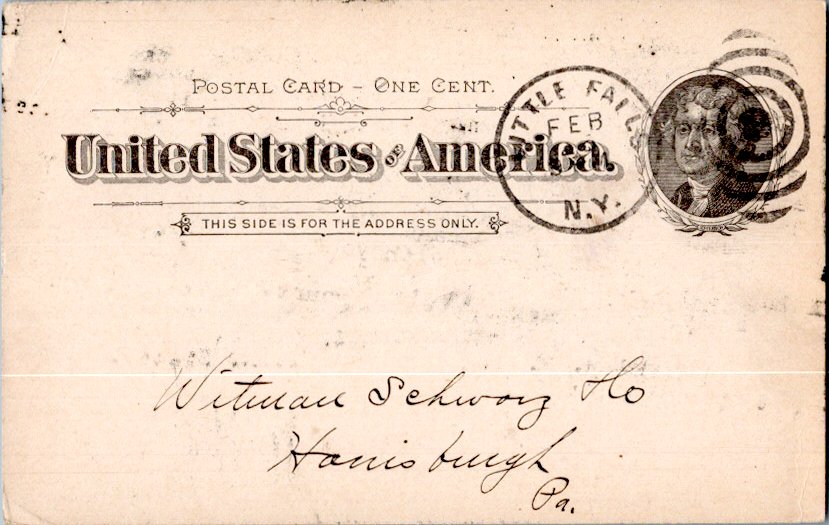 POSTAL CARD - ONE CENT.
United States OF America.
THIS SIDE IS FOR THE ADDRESS ONLY.
LITTLE FALLS
FEB
N.Y.
Witman Schwarz Ho
Harrisburgh
Pa.